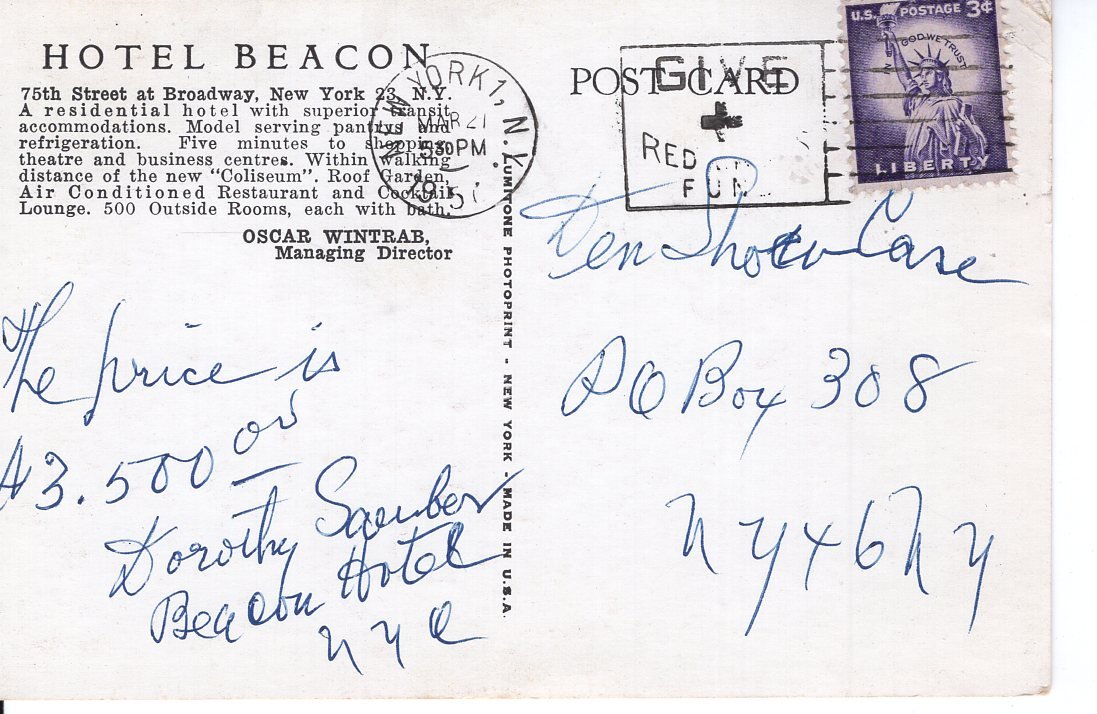 HOTEL BEACON
75th Street at Broadway, New York 23, N.Y.
A residential hotel with superior transit
accommodations. Model serving pantrys and
refrigeration. Five minutes to shopping,
theatre and business centres. Within walking
distance of the new "Coliseum". Roof Garden,
Air Conditioned Restaurant and Cocktail
Lounge. 500 Outside Rooms, each with bath.
OSCAR WINTRAB,
Managing Director
The price is
$3.500 00
Dorothy
Beacon Hotel
NYC
LUMITONE PHOTOPRINT - NEW YORK - MADE IN U.S.A.
NEW YORK 1, N.Y.
MAR 21
530PM
195
POST CARD
GIVE
RED
FUN
U.S. POSTAGE 3¢
IN GOD WE TRUST
LIBERTY
Case
PO Box 308
NY 46 NY